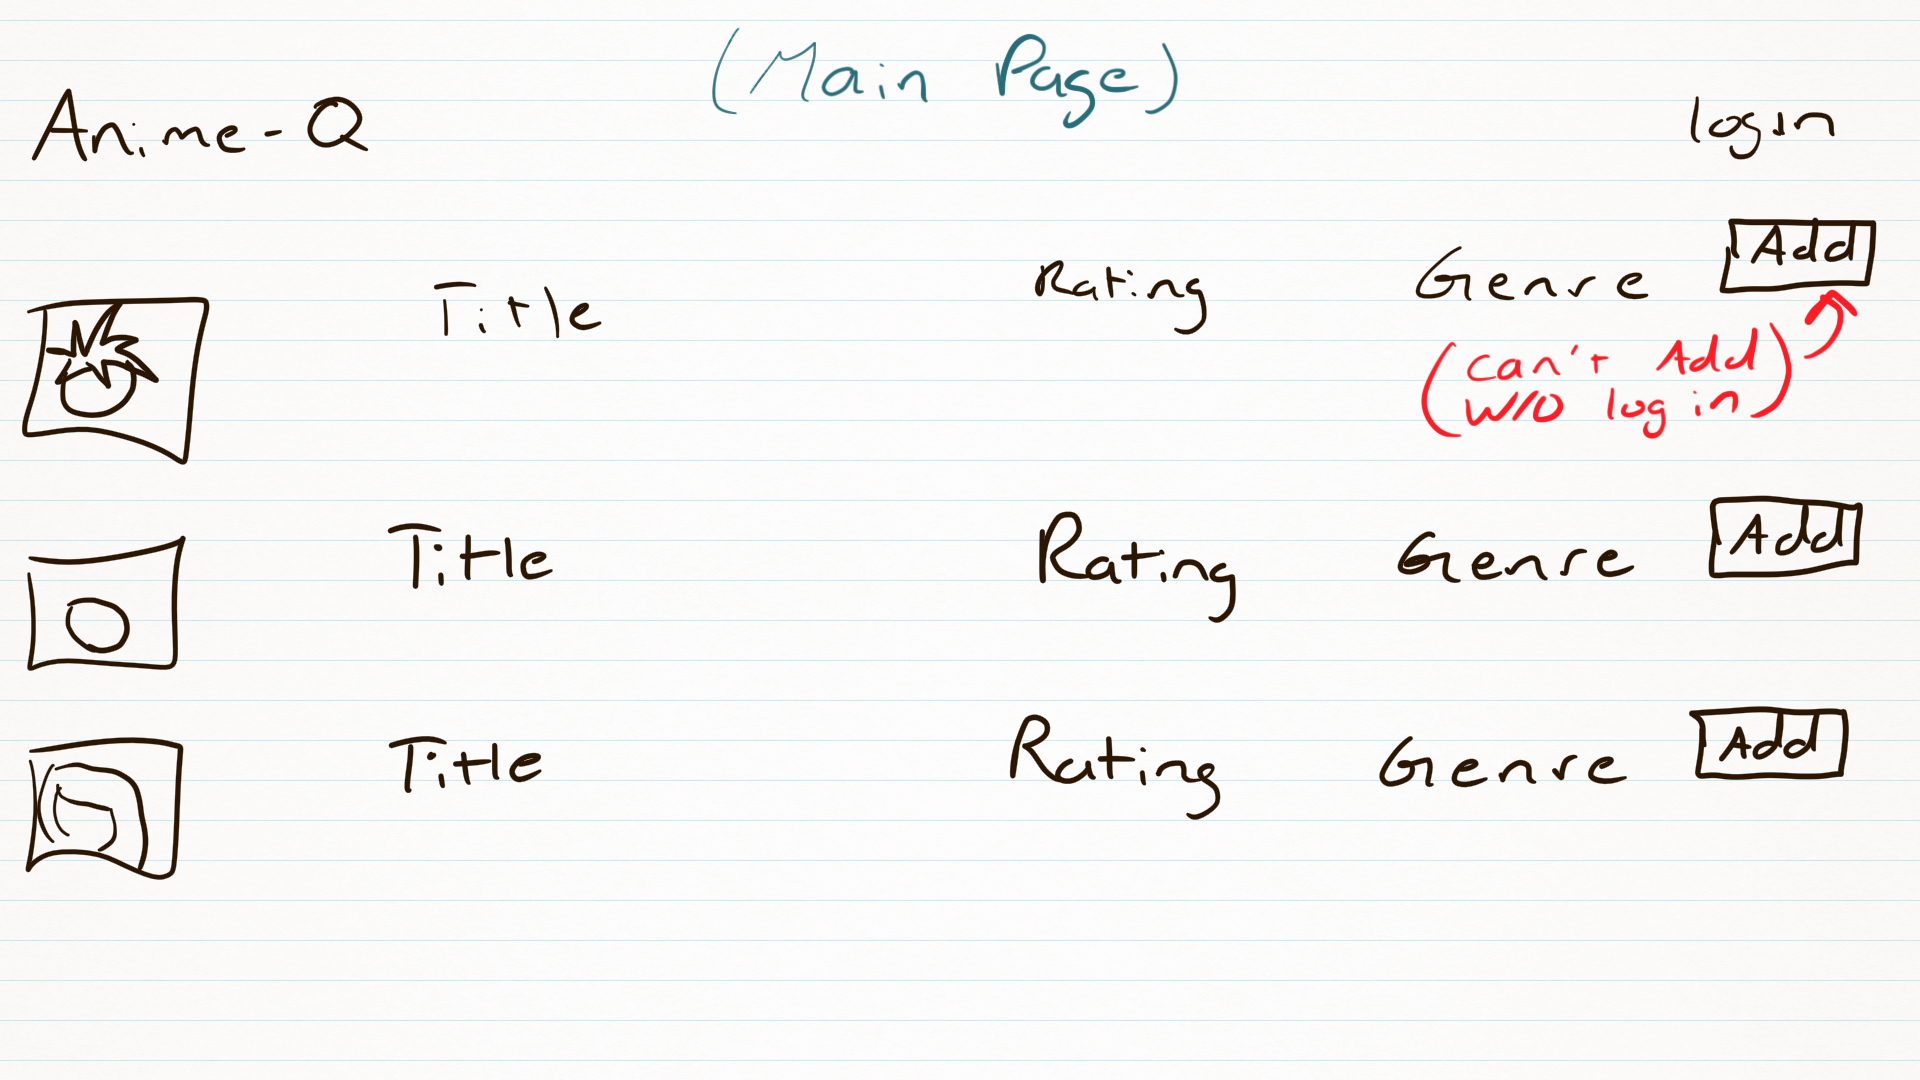 (Main Page)
Anime-Q
login
Title
Rating
Genre
Add
(can't Add
w/o log in)
Title
Rating
Genre
Add
Title
Rating
Genre
Add